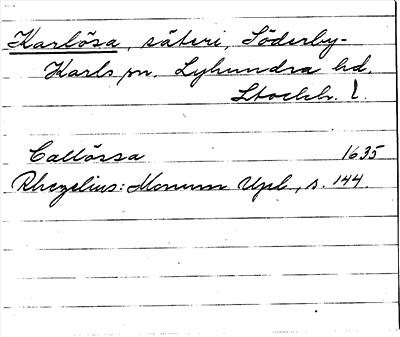 Karlösa, säteri, Söderby-
Karls sn. Lyhundra hd.
Stockh. l.
Callössa 1635
Rhezelius: Monum Upl., s. 144.